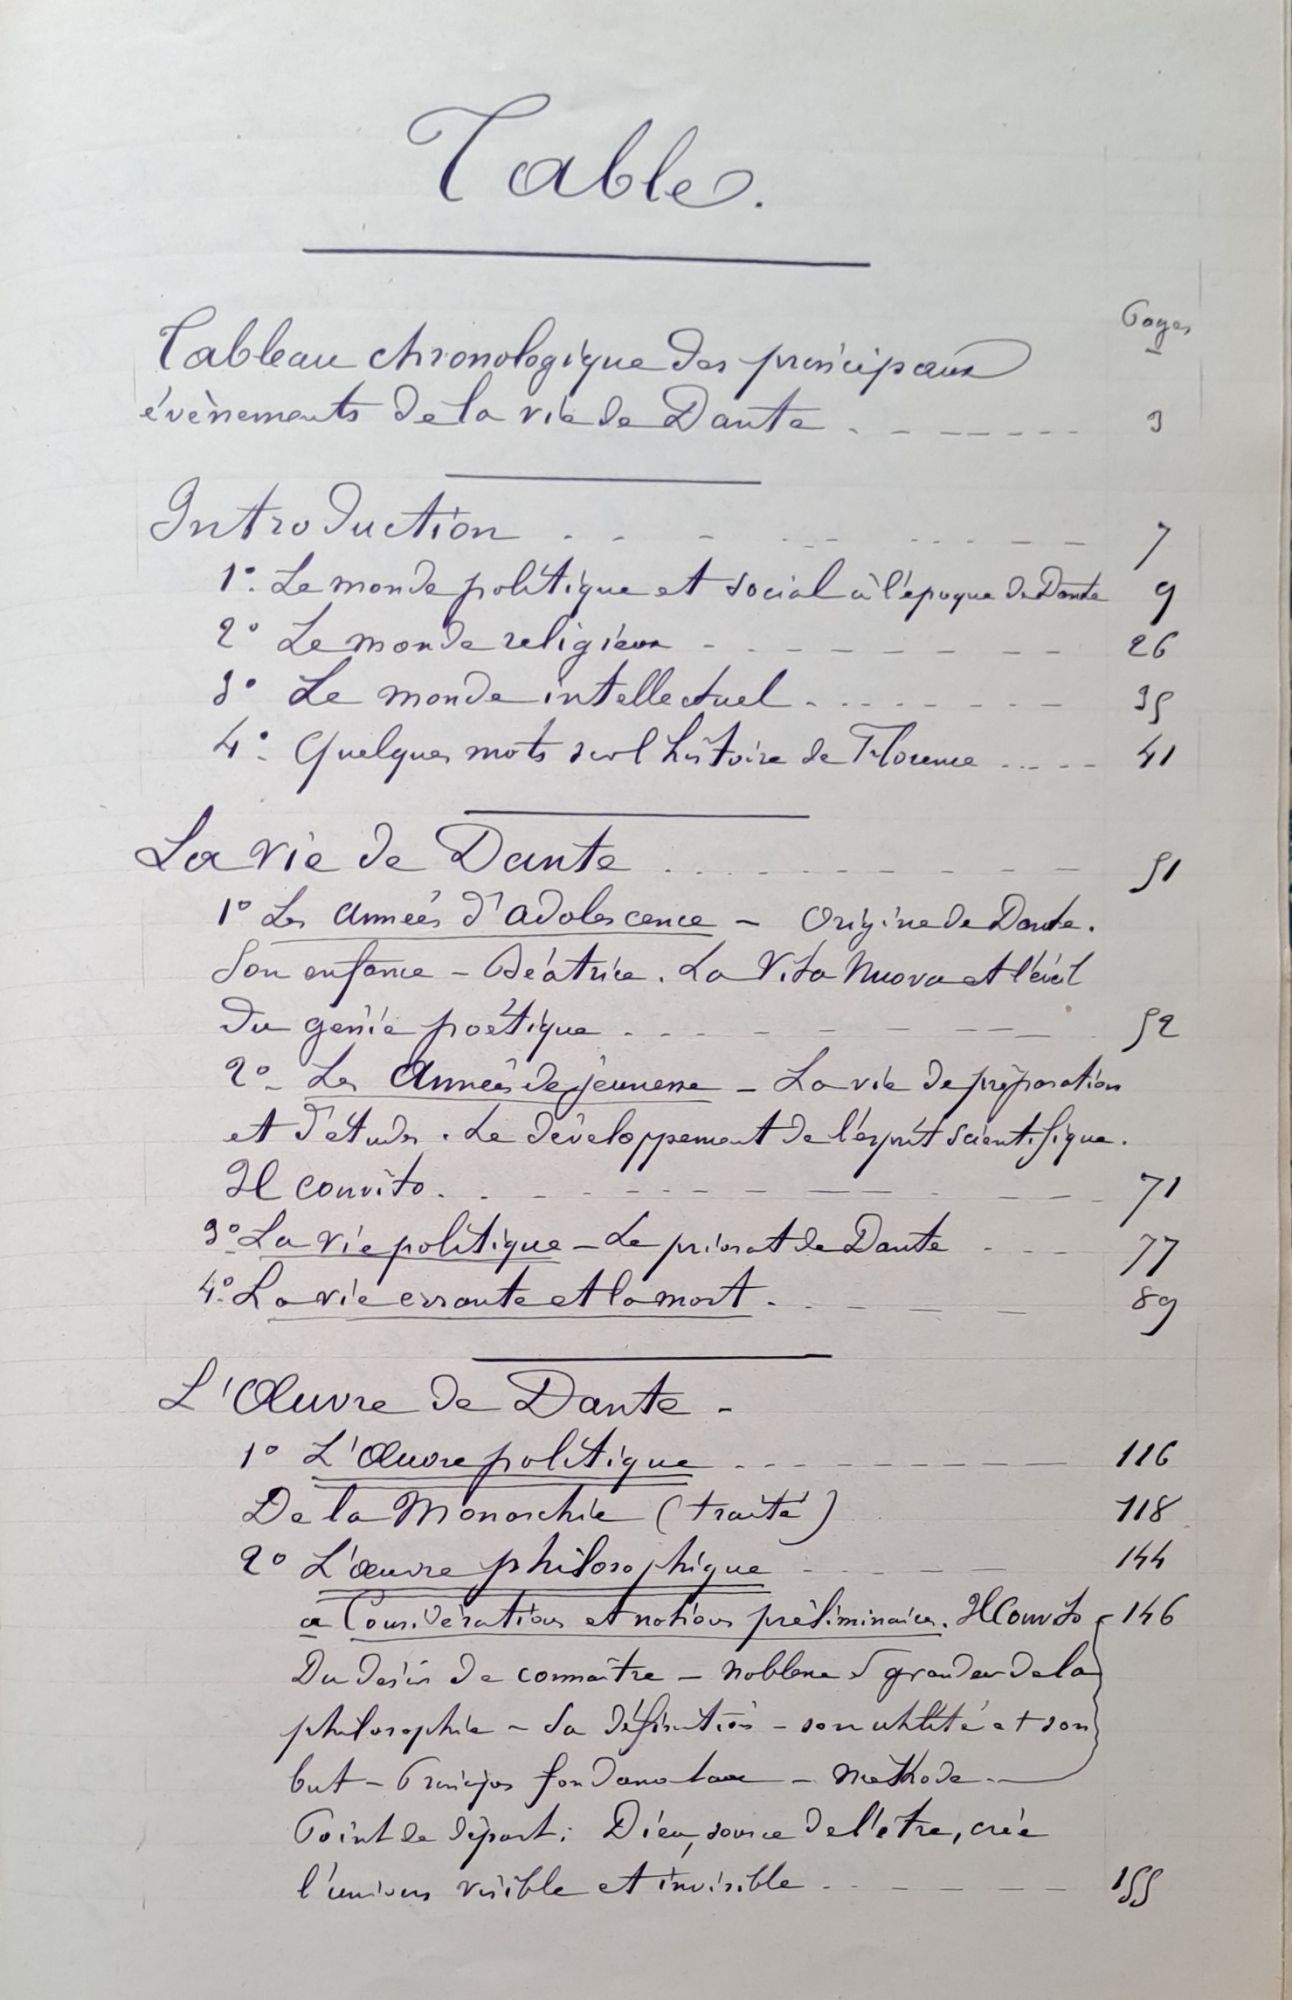 Table.
Pages
Tableau chronologique des principaux
évènements de la vie de Dante . _ _ _ _ _ _ _ 3
Introduction . . - - . . . . . - - - 7
1°. Le monde politique et social à l'époque de Dante 9
2° Le monde religieux - - - - - - - - 26
3° Le monde intellectuel . . . . . . . - - 35
4°. Quelques mots sur l'histoire de Florence . . . . - - 41
La vie de Dante . . . . . . . . . - - - 51
1° Les Années d'adolescence - Origine de Dante.
Son enfance - Béatrice. La Vita Nuova et l'éveil
du génie poétique . - - - - - - - 52
2° - Les Années de jeunesse - La vie de préparation
et d'études. Le développement de l'esprit scientifique.
Il convito. . - - - - - - - - - 71
3° La vie politique - Le priorat de Dante - - - 77
4°. La vie errante et la mort . . - - - - 89
L'Œuvre de Dante -
1° L'Œuvre politique - - - - - - - - 116
De la Monarchie (traité) 118
2° L'œuvre philosophique - - - - - 144
a Considérations et notions préliminaires. Il Convito - 146
Du désir de connaître - noblesse et grandeur de la
philosophie - Sa définition - son utilité et son
but - Principes fondamentaux - Méthode -
Point de départ : Dieu, source de l'être, crée
l'univers visible et invisible . - - - - - 155